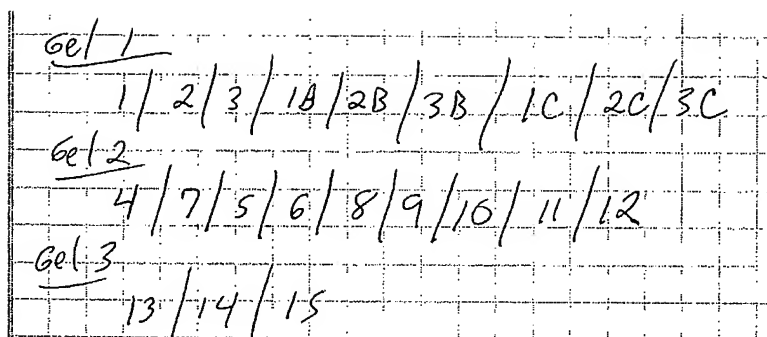 Gel 1
1 / 2 / 3 / 1B / 2B / 3B / 1C / 2C / 3C
Gel 2
4 / 7 / 5 / 6 / 8 / 9 / 10 / 11 / 12
Gel 3
13 / 14 / 15